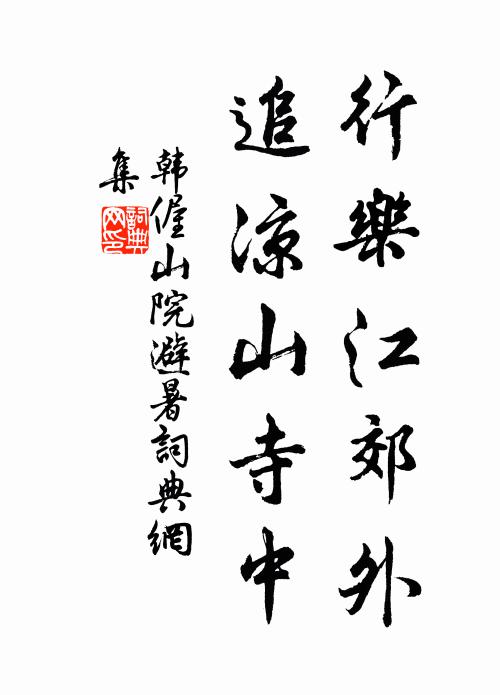 行樂江郊外
追涼山寺中
韩偓山院避暑詞典網
集
詞典
网印